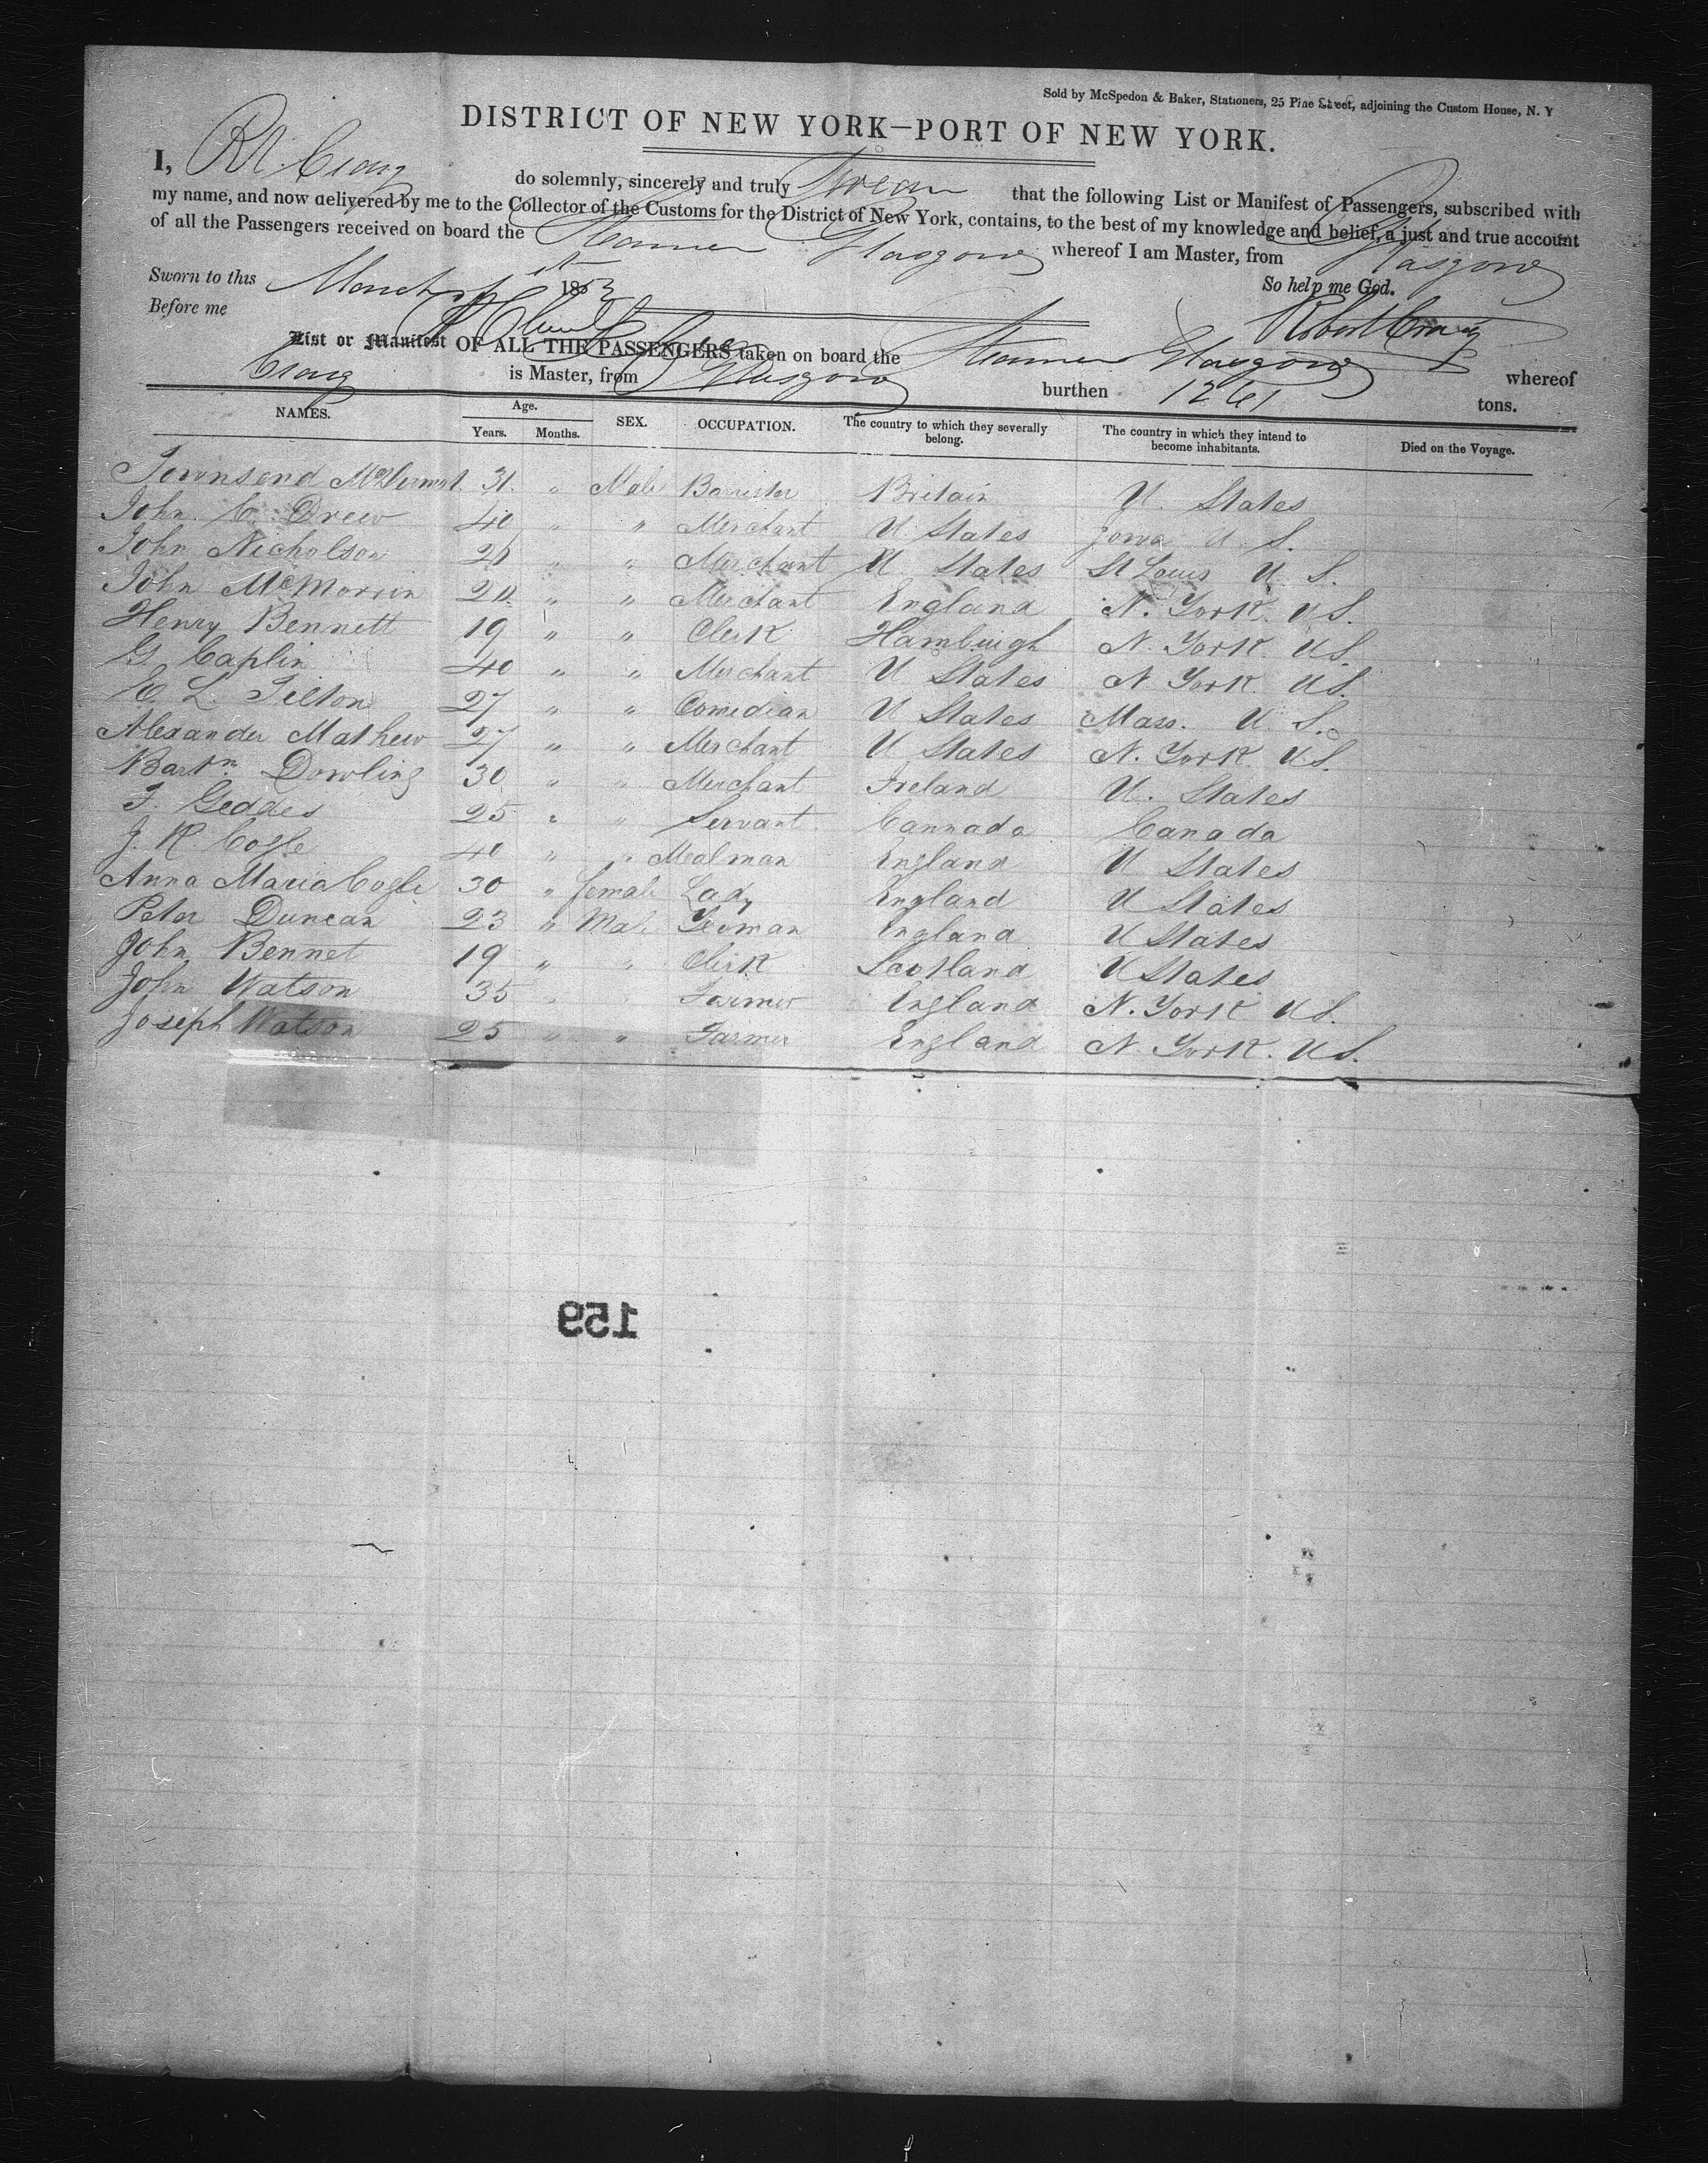 Sold by McSpedon & Baker, Stationers, 25 Pine Street, adjoining the Custom House, N. Y
DISTRICT OF NEW YORK—PORT OF NEW YORK.
I, Rt. Craig do solemnly, sincerely and truly Swear that the following List or Manifest of Passengers, subscribed with
my name, and now delivered by me to the Collector of the Customs for the District of New York, contains, to the best of my knowledge and belief, a just and true account
of all the Passengers received on board the Steamer Glasgow whereof I am Master, from Glasgow
Sworn to this March 1853 So help me God.
Before me Robert Craig
List or Manifest OF ALL THE PASSENGERS taken on board the Steamer Glasgow whereof
Craig is Master, from Glasgow burthen 1261 tons.
NAMES. Age. Years. Months. SEX. OCCUPATION. The country to which they severally belong. The country in which they intend to become inhabitants. Died on the Voyage.
Townsend McDermot 31. " Male Barister Britain U. States
John C. Drew 40 " " Merchant U. States Iowa U. S.
John Nicholson 26 " " Merchant U. States St Louis U. S.
John McMorrin 20 " " Merchant England N. York. U S.
Henry Bennett 19 " " Clerk Hamburgh N. York. U S.
G. Caplin 40 " " Merchant U States N York. U S.
E. L. Tilton 27 " " Comedian U States Mass. U. S.
Alexander Mathew 27 " " Merchant U States N. York. U S.
Bartn Dowling 30 " " Merchant Ireland U. States
T. Geddes 25 " " Servant. Cannada Canada
J. K. Cogle 40 " " Mealman England U States
Anna Maria Cogle 30 " female Lady England U States
Peter Duncan 23 " Male Yeoman England U States
John Bennet 19 " " Clerk Scotland U States
John Watson 35 " " Farmer England N. York U S.
Joseph Watson 25 " " Farmer England N. York. U S.
159